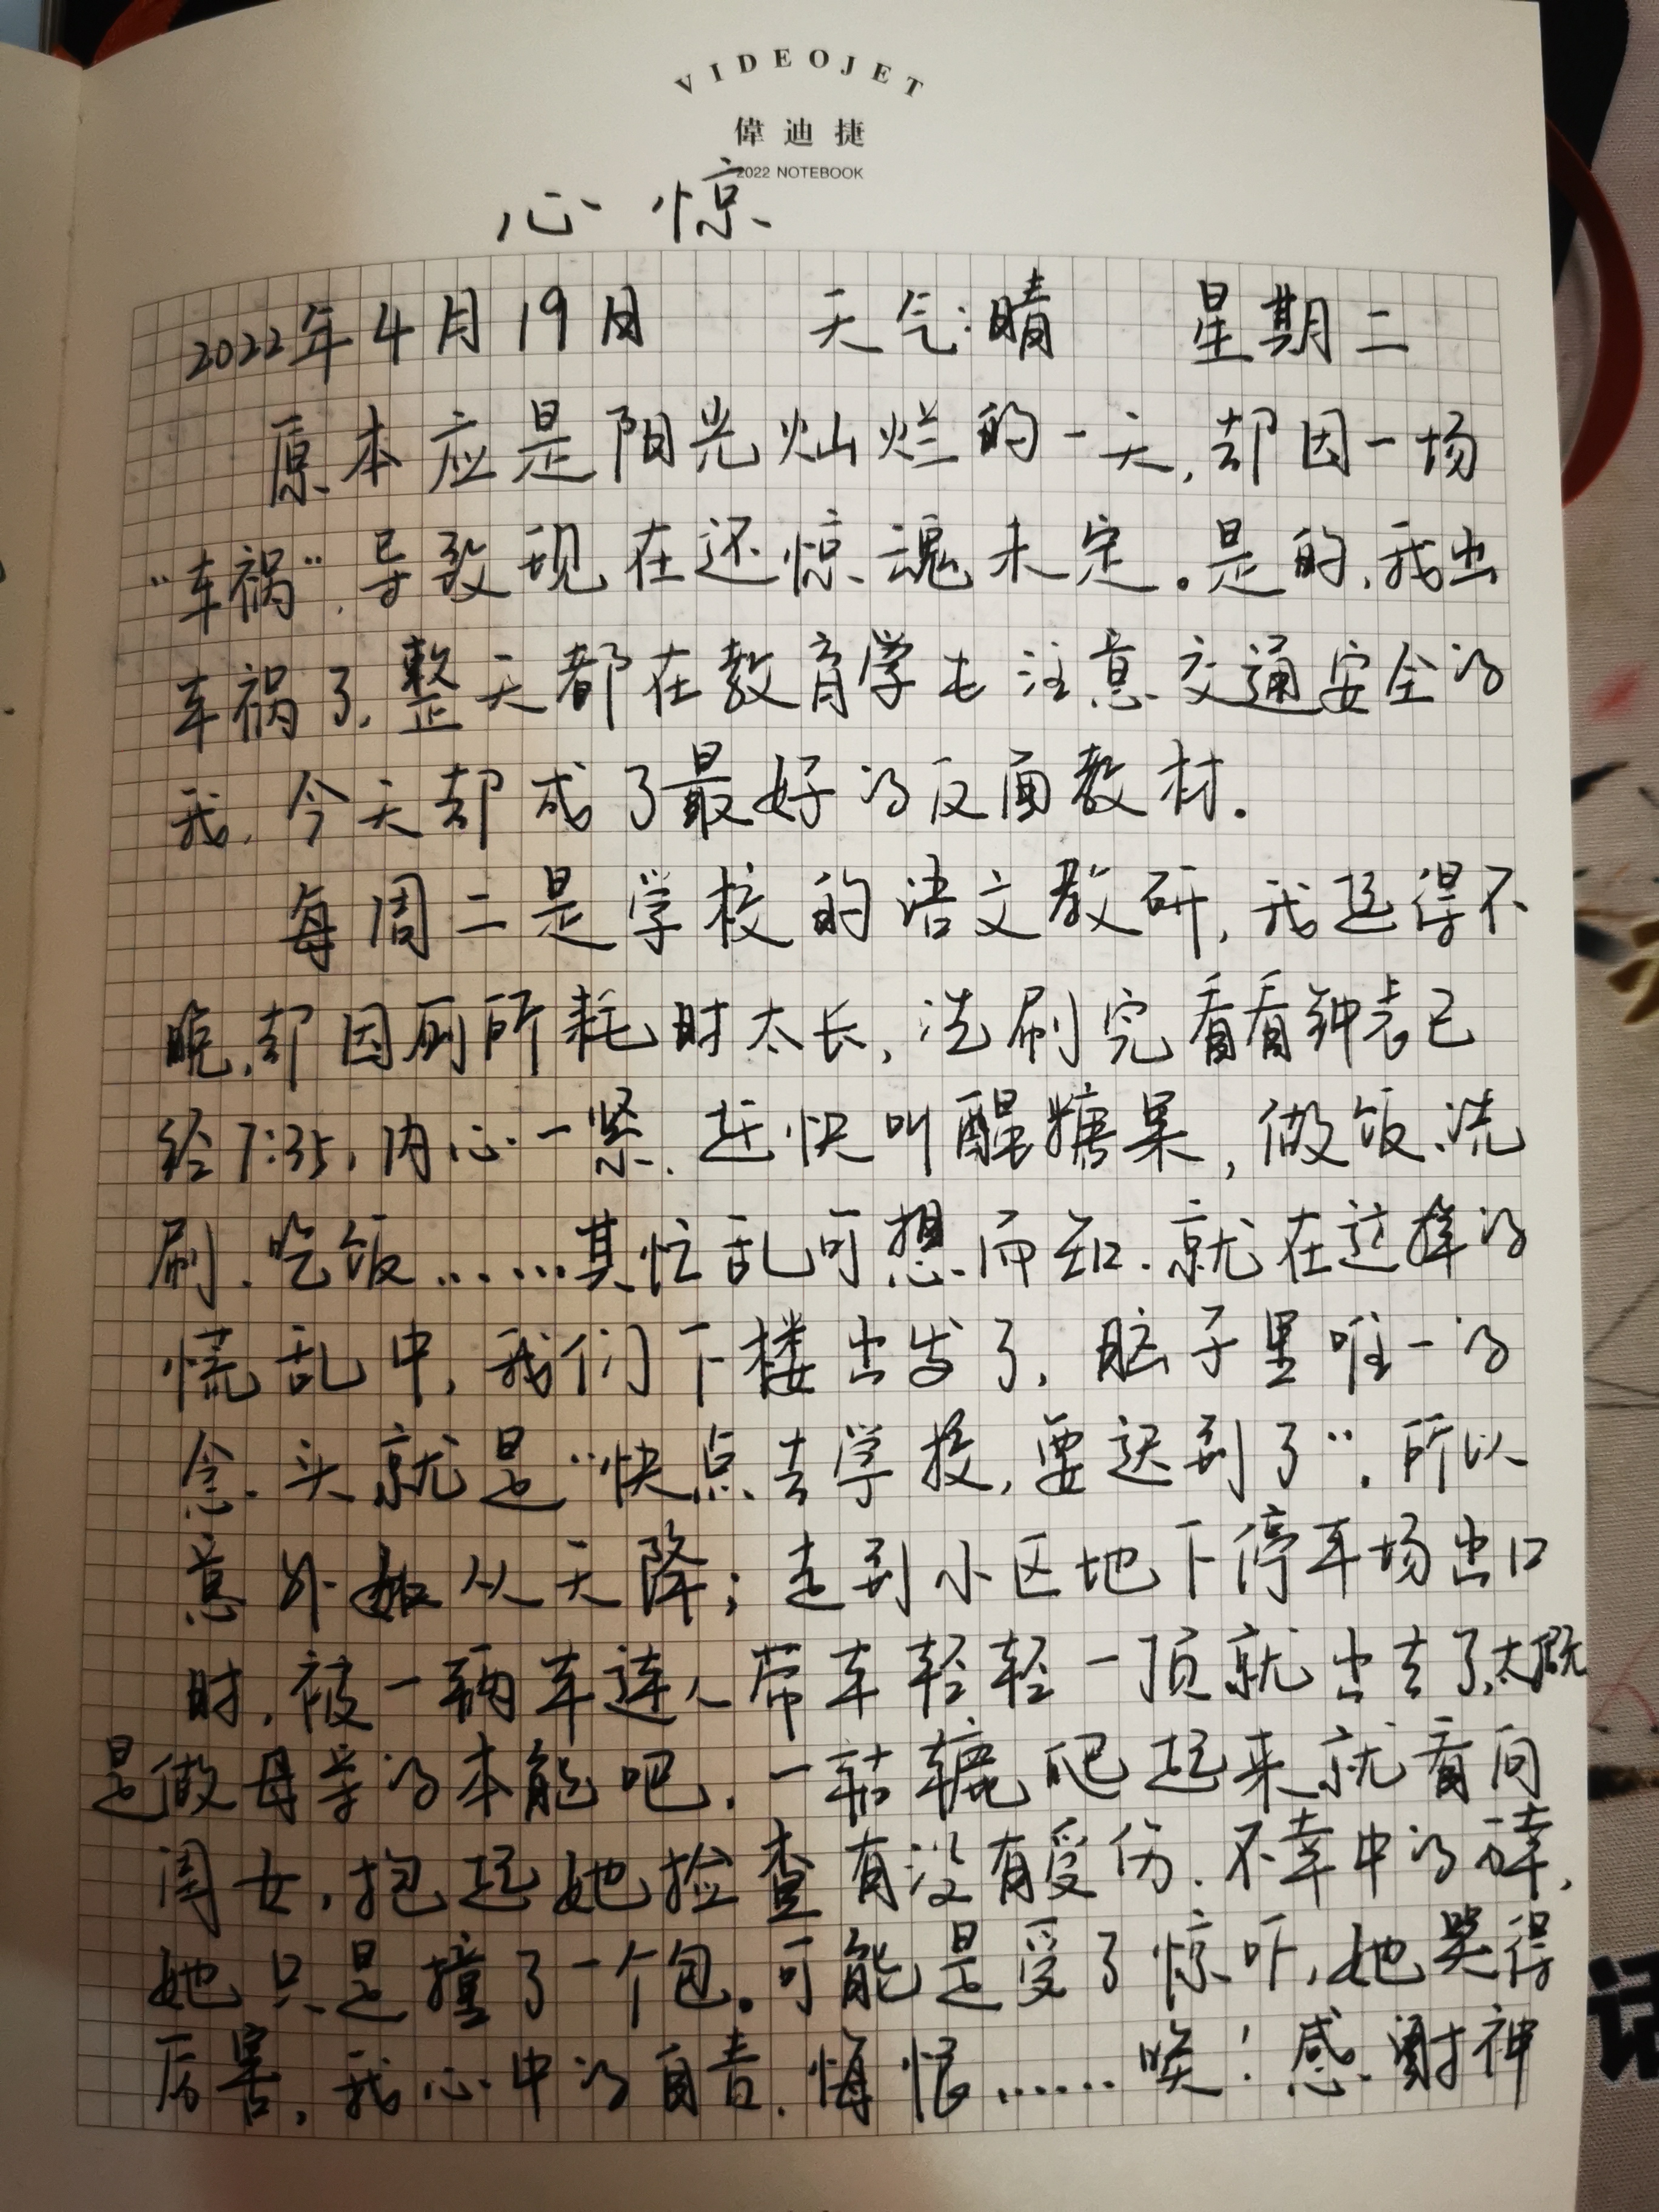 VIDEOJET
偉迪捷
2022 NOTEBOOK
心惊
2022年4月19日 天气:晴 星期二
原本应是阳光灿烂的一天,却因一场
“车祸”,导致现在还惊魂未定。是的,我出
车祸了,整天都在教育学生注意交通安全的
我,今天却成了最好的反面教材.
每周二是学校的语文教研,我起得不
晚,却因厕所耗时太长,洗刷完看看钟表已
经7:35,内心一紧,赶快叫醒糖果,做饭、洗
刷、吃饭……其忙乱可想而知.就在这样的
慌乱中,我们下楼出发了,脑子里唯一的
念头就是“快点去学校,要迟到了”.所以
意外就从天降;走到小区地下停车场出口
时,被一辆车连人带车轻轻一顶就出去了,大概
是做母亲的本能吧,一轱辘爬起来就看向
闺女,抱起她捡查有没有受伤.不幸中的万幸,
她只是撞了一个包.可能是受了惊吓,她哭得
厉害,我心中的自责、悔恨……唉!感谢神
话